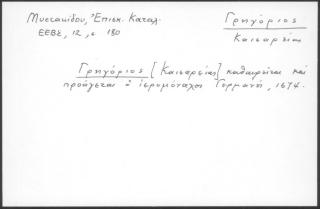 Μυστακίδου, Ἐπισκ. Καταλ.
ΕΕΒΣ, 12, σ 180
Γρηγόριος
Καισαρείας
Γρηγόριος [Καισαρείας] καθαιρεῖται καὶ
προάγεται ὁ ἱερομόναχος Γερμανή, 1674.